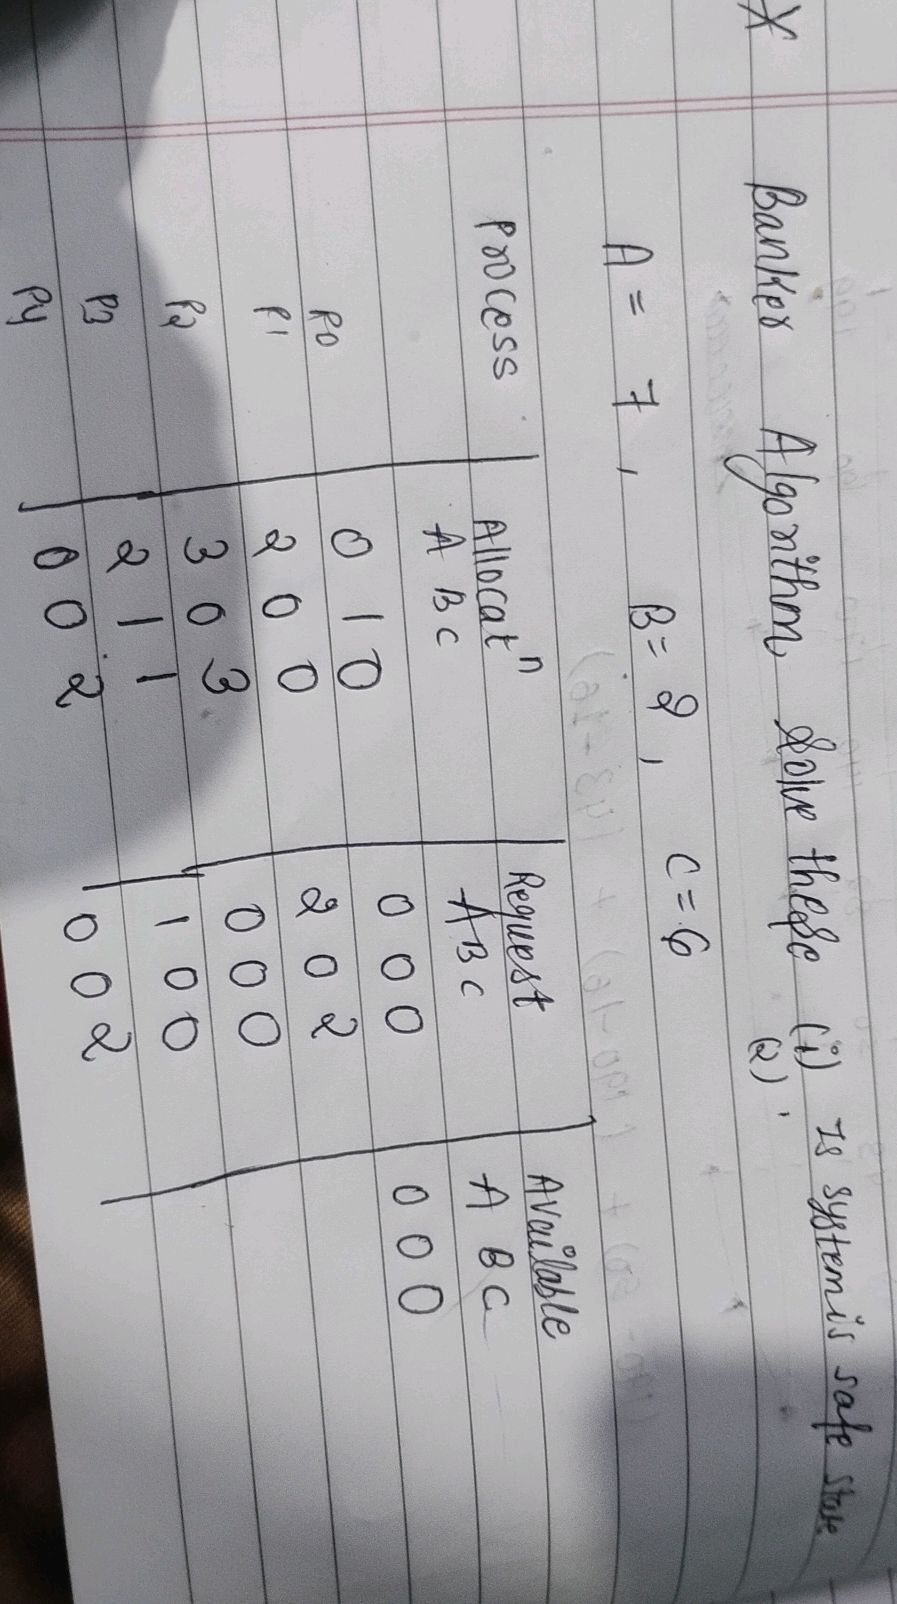 X Banker Algorithm Solve these (i) Is system is safe state
(2).
A = 7, B = 2, C = 6
Process Allocatⁿ Request Available
A B C A B C A B C
P0 0 1 0 0 0 0 0 0 0
P1 2 0 0 2 0 2
P2 3 0 3 0 0 0
P3 2 1 1 1 0 0
P4 0 0 2 0 0 2